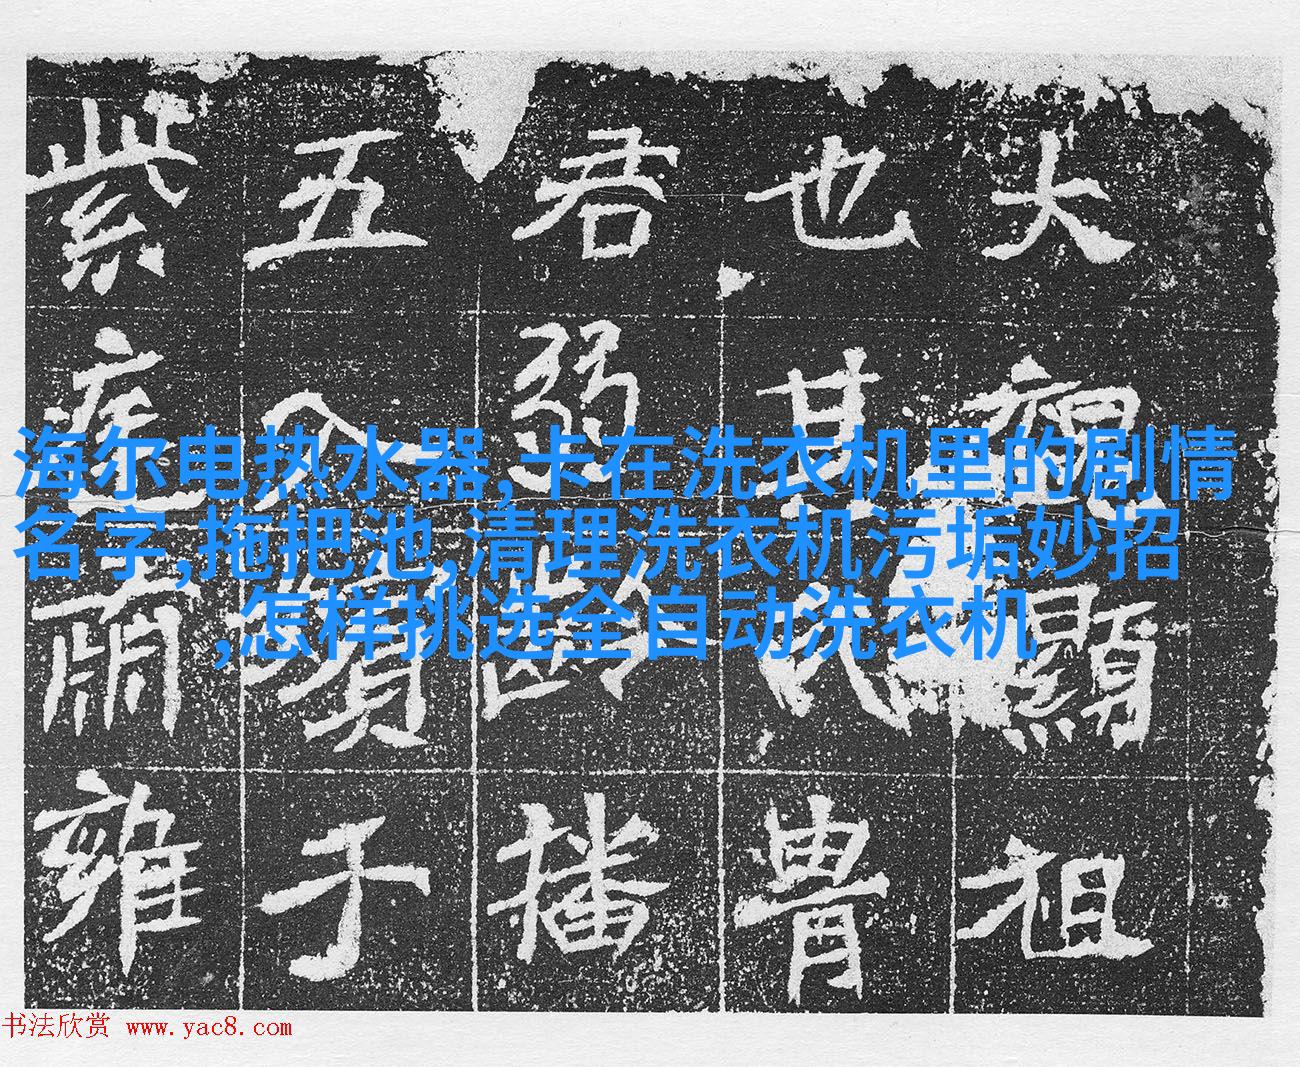 海尔电热水器,卡在洗衣机里的剧情
名字,拖把池,清理洗衣机污垢妙招
,怎样挑选全自动洗衣机
大顯祖
也其胄
君弱齡播
五入于
紫庭雍
书法欣赏 www.yac8.com